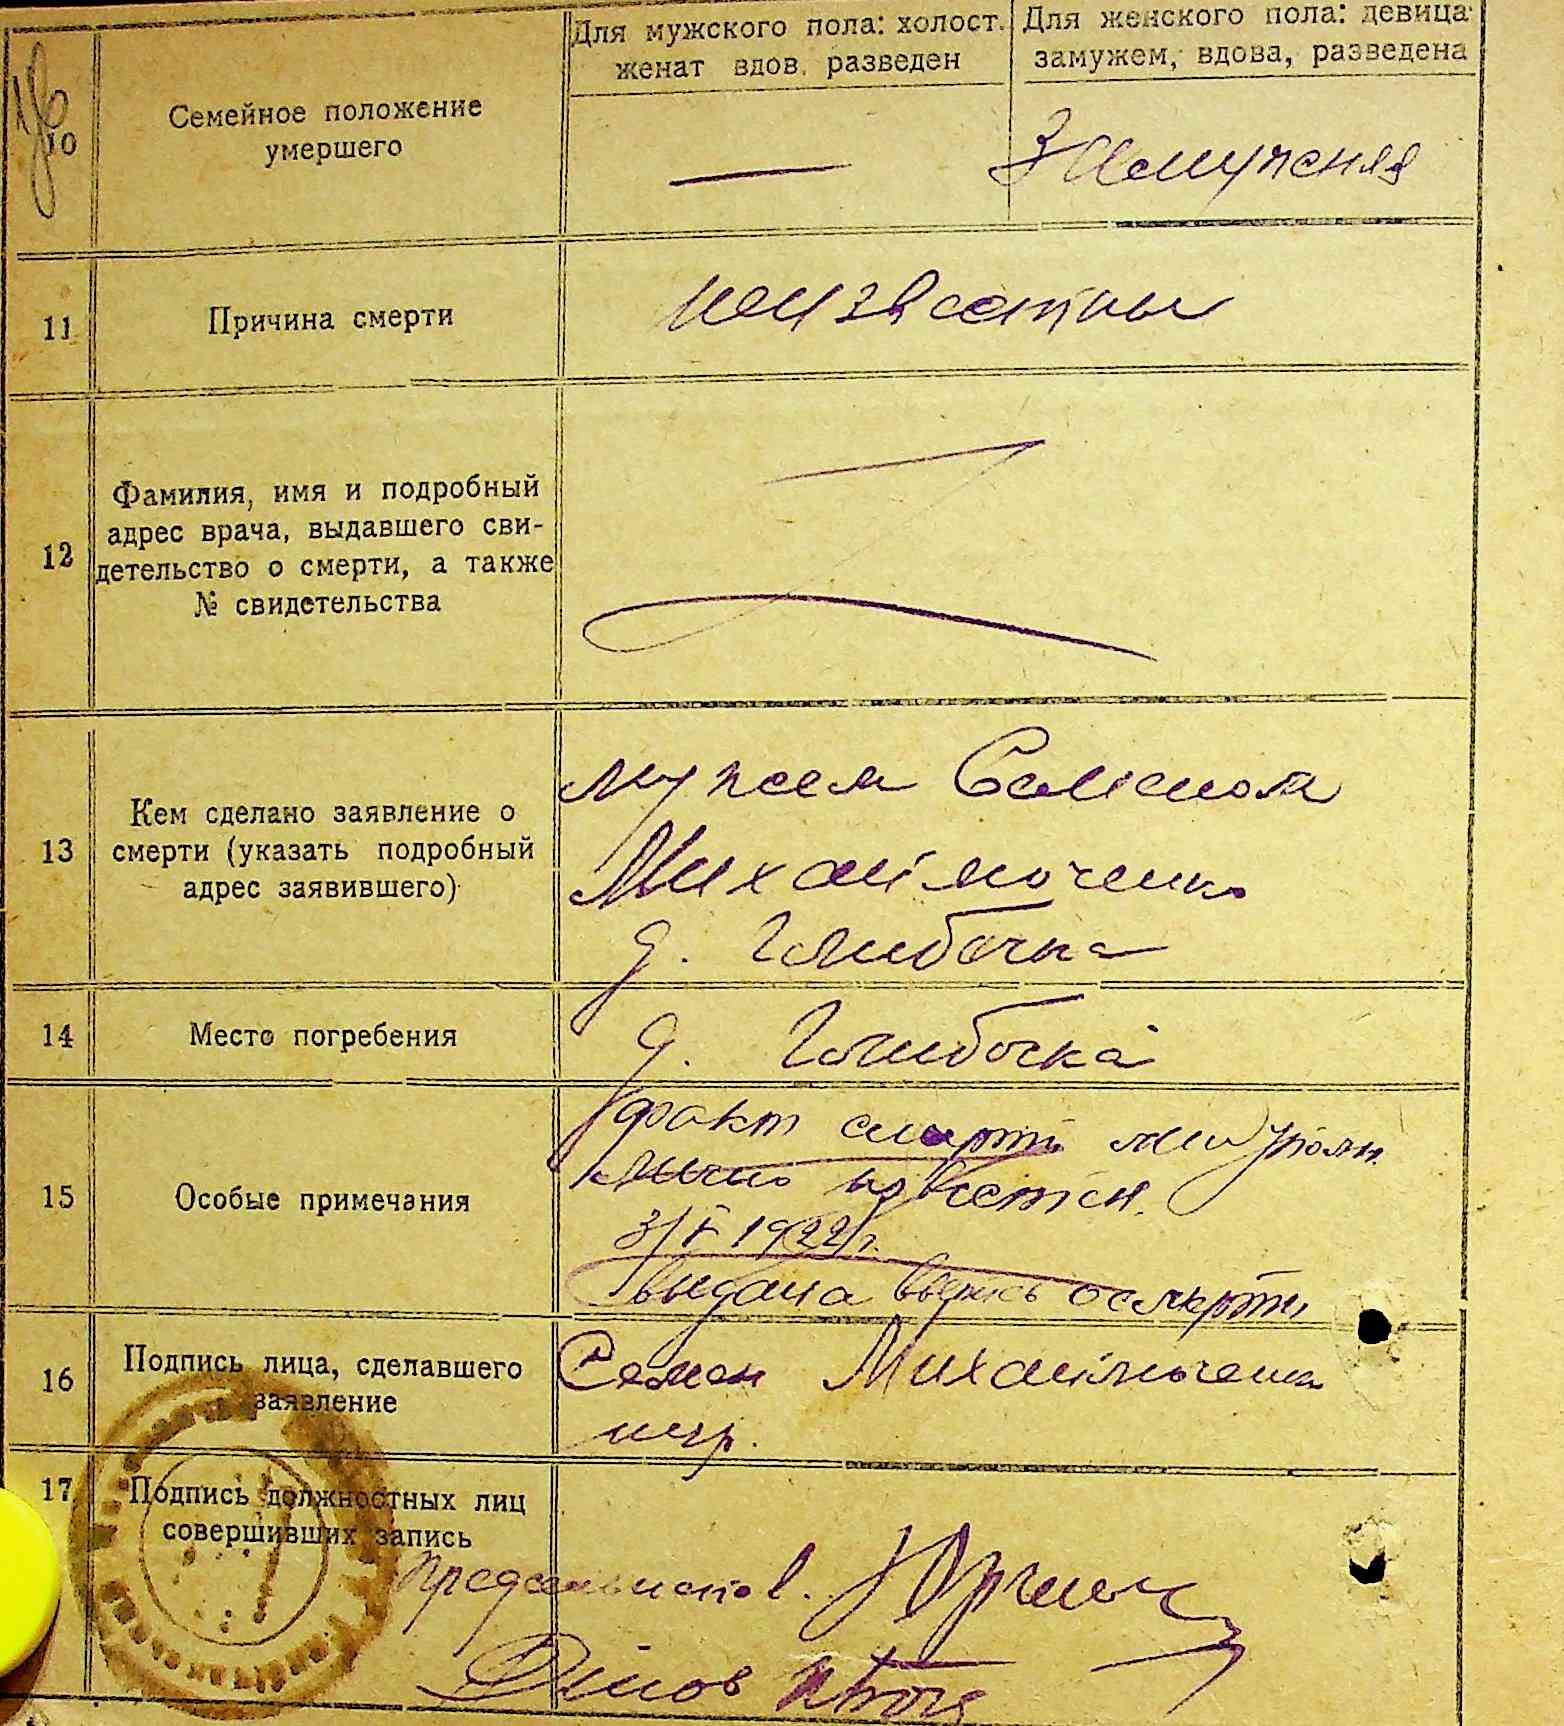 Для мужского пола: холост.
женат вдов. разведен
Для женского пола: девица
замужем, вдова, разведена
10
Семейное положение
умершего
—
Замужняя
11
Причина смерти
неизвестны
12
Фамилия, имя и подробный
адрес врача, выдавшего сви-
детельство о смерти, а также
№ свидетельства
13
Кем сделано заявление о
смерти (указать подробный
адрес заявившего)
мужем Семеном
д. Глибочка
14
Место погребения
д. Глибочка
15
Особые примечания
факт смерти
лично известен.
3/V 1922 г.
выдана выпись о смерти
16
Подпись лица, сделавшего
заявление
Семен
негр.
17
Подпись должностных лиц
совершивших запись